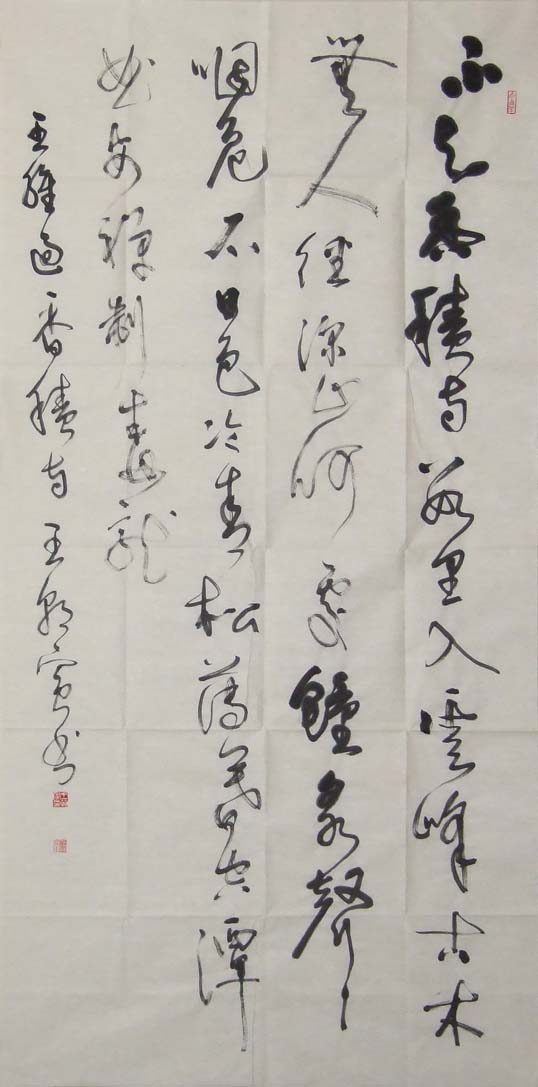 不知香積寺數里入雲峰古木
無人徑深山何處鐘泉聲
咽危石日色冷青松薄暮空潭
曲安禪制毒龍
王維過香積寺 王朝賓書